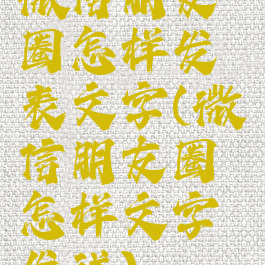 微信朋友
圈怎样发
表文字(微
信朋友圈
怎样文字
发送)